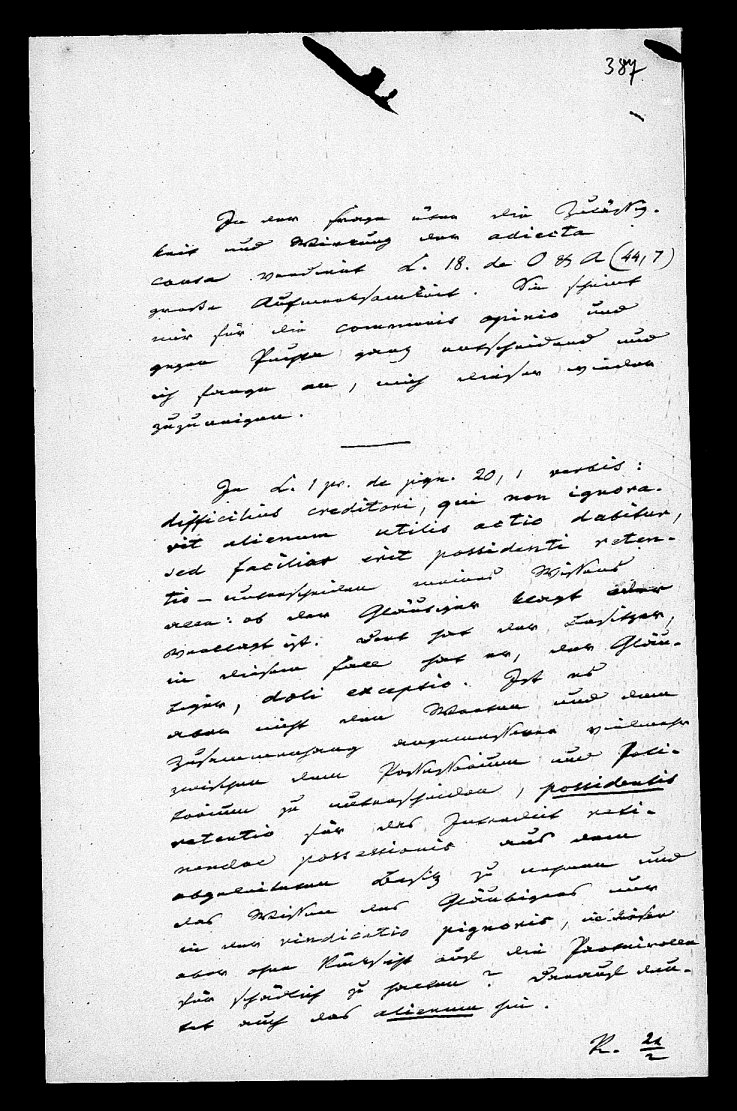 387
In der Frage über die Zulässig-
keit und Wirkung der adiecta
causa verdient L. 18. de O & A (44,7)
große Aufmerksamkeit. Sie scheint
mir für die communis opinio und
gegen Puchta ganz entscheidend und
ich fange an, mich dieser wieder
zuzuneigen.
In L. 1 pr. de pign. 20,1 verbis:
difficilius creditori, qui non ignora-
vit alienum utilis actio dabitur,
sed facilior erit possidenti reten-
tio – unterscheiden meines Wissens
alle: ob der Gläubiger klagt oder
verklagt ist. Dort hat der Besitzer,
in diesem Falle hat er, der Gläu-
biger, doli exceptio. Ist es
aber nicht den Worten und dem
Zusammenhang angemessener vielmehr
zwischen dem Possessorium und Peti-
torium zu unterscheiden, possidentis
retentio für das Interdict reti-
nendae possessionis aus dem
abgeleiteten Besitz zu nehmen und
das Wissen des Gläubigers nur
in der vindicatio pignoris, in dieser
aber ohne Rücksicht auf die Parteirollen
für schädlich zu halten? Darauf deu-
tet auch das alienum hin.
R. 21/2